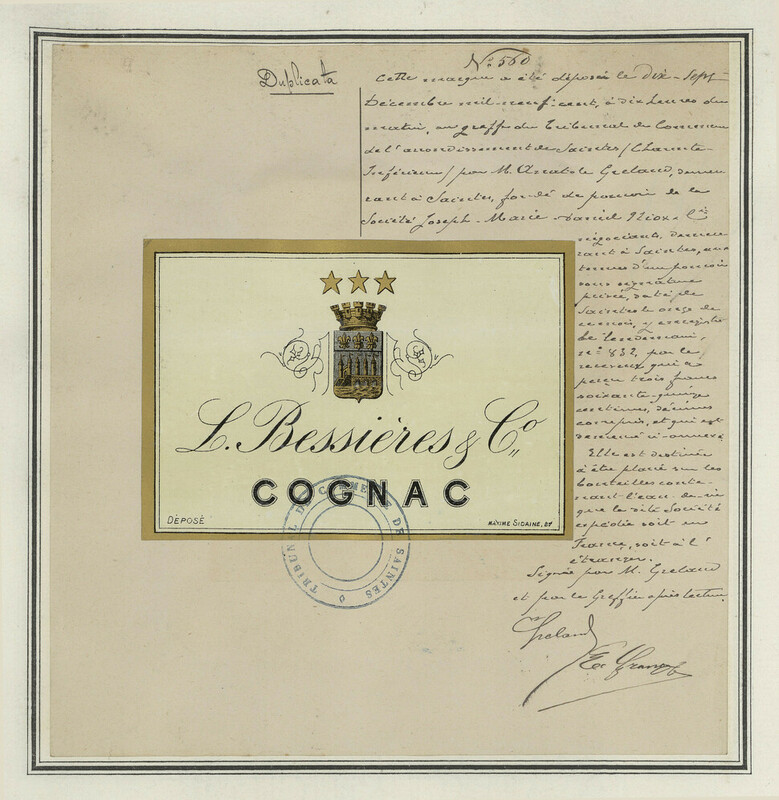 Duplicata
No 560
Cette marque a été déposée le dix-sept
Décembre mil-neuf-cent, à dix heures du
matin, au greffe du Tribunal de Commerce
de l'arrondissement de Saintes (Charente-
Inférieure) par M. Anatole Greland, demeu-
rant à Saintes, fondé de pouvoir de la
Société Joseph-Marie-Daniel & Cie
négociants, demeu-
rant à Saintes, aux
termes d'un pouvoir
sous signature
privée, daté de
Saintes le onze de
ce mois, y enregistré
le lendemain,
no 832, par le
receveur qui a
perçu trois francs
soixante-quinze
centimes, décimes
compris, et qui est
demeuré ci-annexé
Elle est destinée
à être placée sur les
bouteilles conte-
nant l'eau-de-vie
que la dite Société
expédie soit en
France, soit à l'
étranger.
Signé par M. Greland
et par le Greffier après lecture.
Greland
L. Bessières & Co
COGNAC
DÉPOSÉ
MAXIME SICAINE, Bx
TRIBUNAL DE COMMERCE DE SAINTES